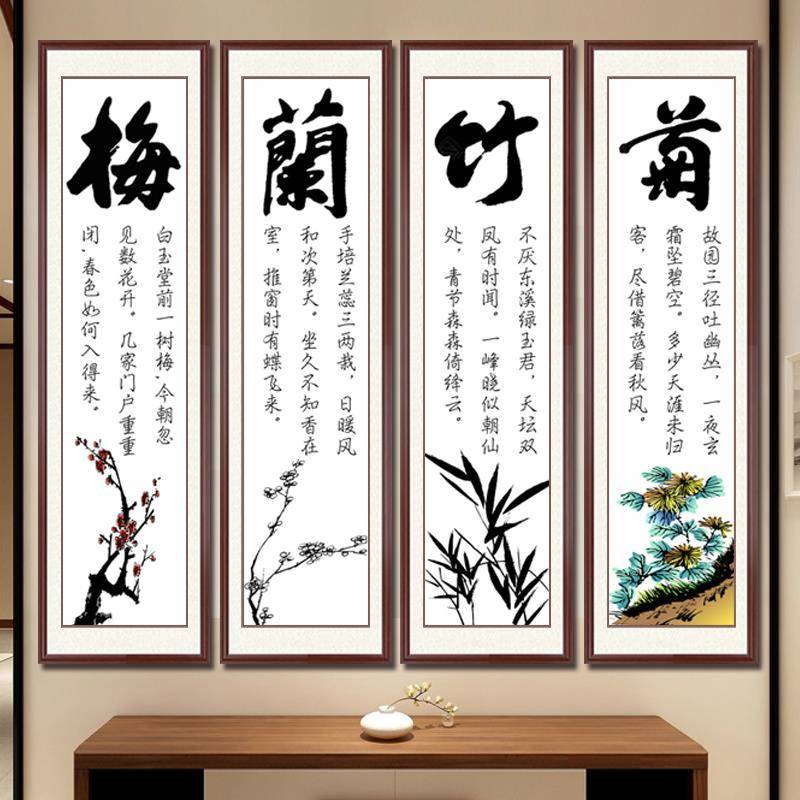 梅
白玉堂前一树梅，今朝忽
见数花开。几家门户重重
闭，春色如何入得来。
蘭
手培兰蕊三两栽，日暖风
和次第天。坐久不知香在
室，推窗时有蝶飞来。
竹
不厌东溪绿玉君，天坛双
凤有时闻。一峰晓似朝仙
处，青节森森倚绛云。
菊
故园三径吐幽丛，一夜玄
霜坠碧空。多少天涯未归
客，尽借篱落看秋风。